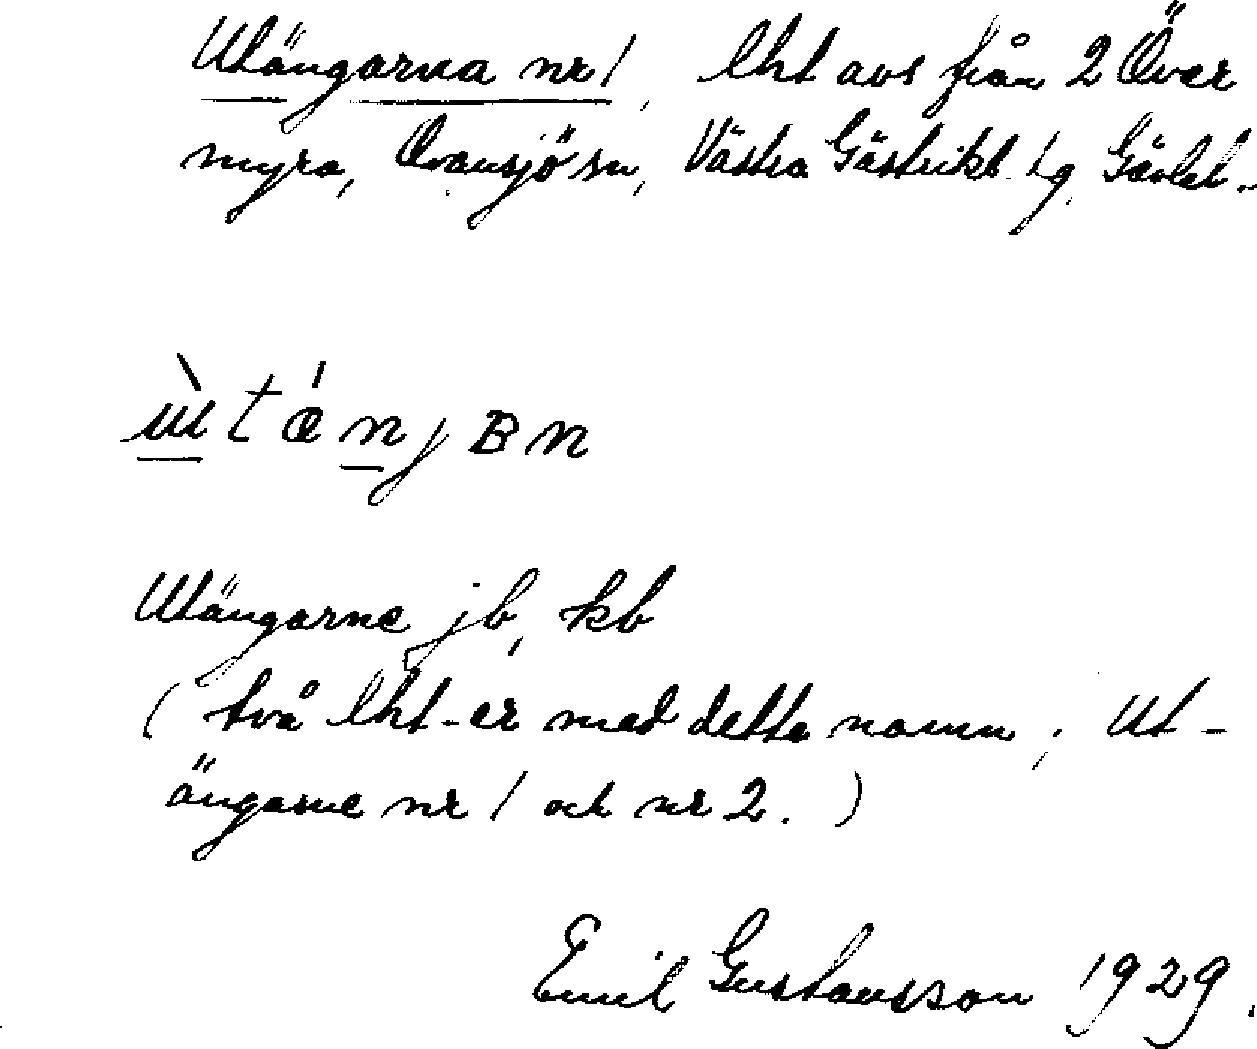 Utängarna nr 1, lht avs från 2 Över
myra, Ovansjö sn, Västra Gästrikl. tg Gävlebl.
ùtánjBn
Utängarne jb, kb
(två lht-er med detta namn, Ut-
ängarne nr 1 och nr 2.)
Emil Gustavsson 1929.